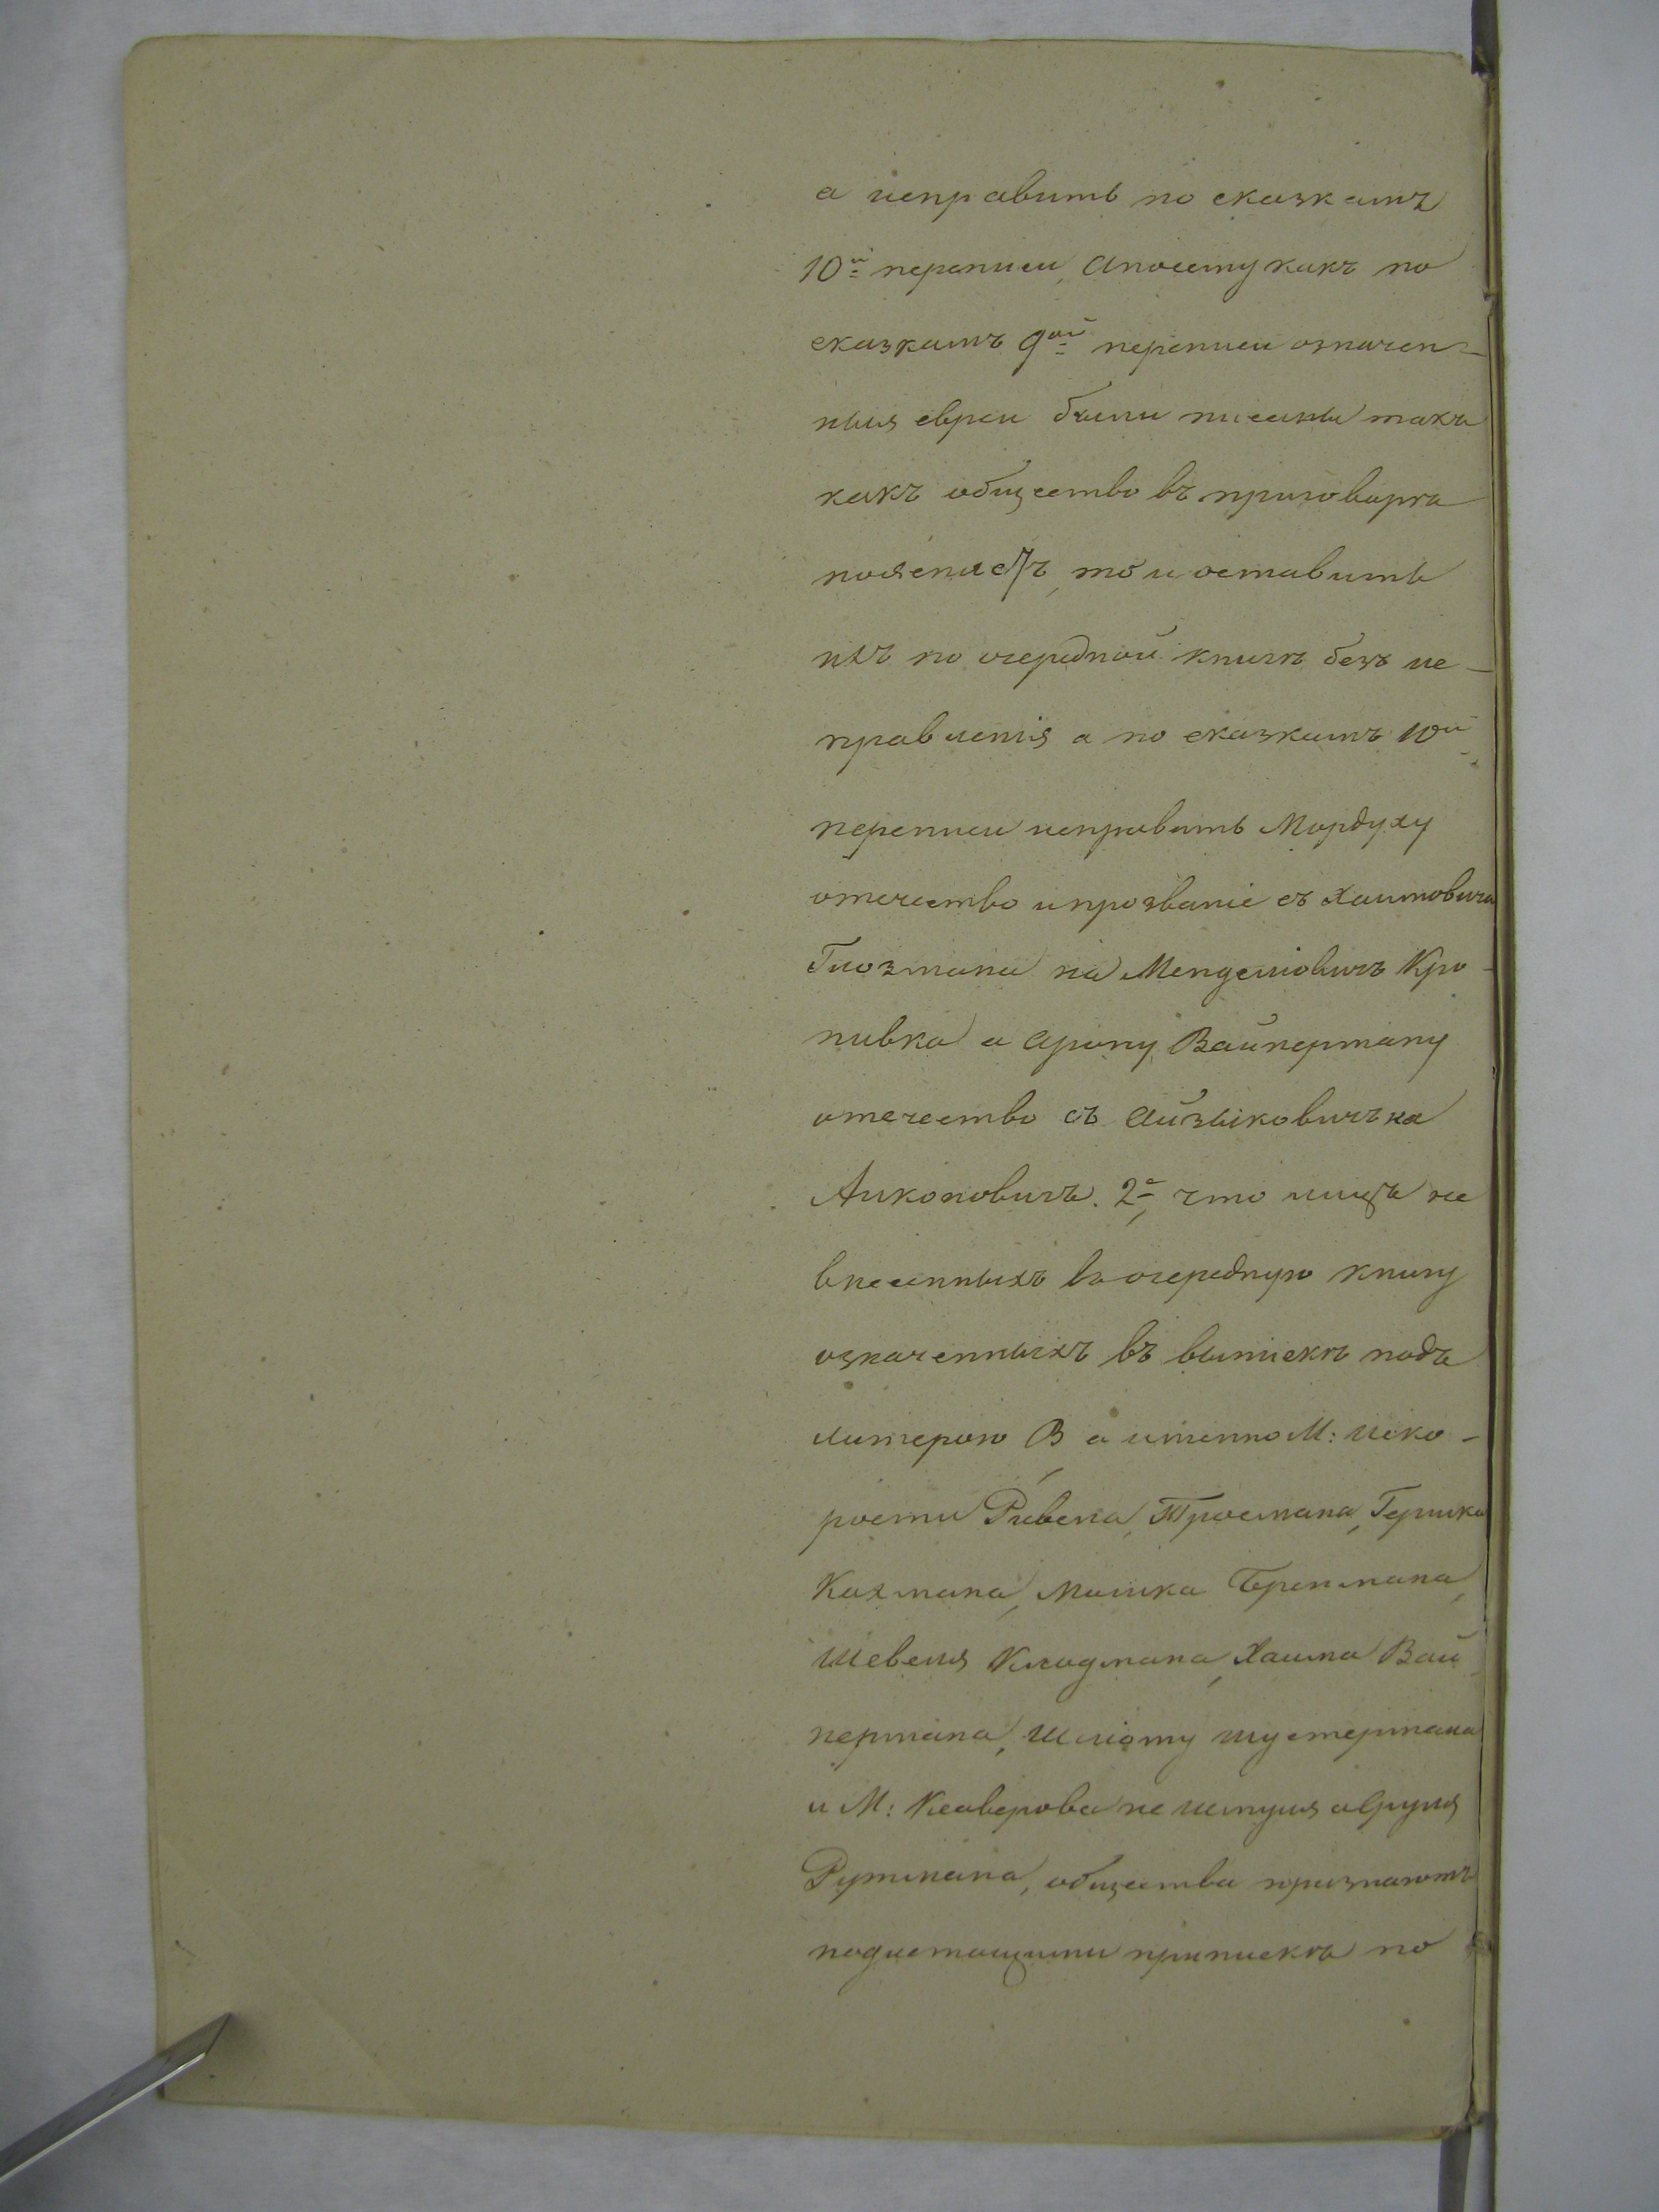 а исправить по сказкамъ
10й переписи, а посему какъ по
сказкамъ 9ой переписи означен-
ныя евреи были писаны такъ
какъ общество въ приговорѣ
поясняетъ, то и оставить
ихъ по очередной книгѣ безъ ис-
правленія а по сказкамъ 10й
переписи исправить Мордуху
отечество и прозваніе съ Хаимовича
Глозмана на Менделіовичъ Кро-
пивка а Арону Вайнерману
отечество съ Айзыковичъ на
Анконовичъ. 2е, что лицъ не
внесенныхъ въ очередную книгу
означенныхъ въ выпискѣ подъ
литерою В а именно М: Иско-
рости Рувена Тросмана, Гершка
Кахмана, Мошка Бренмана,
Шевеля Клодмана, Хаима Вай
нермана, Шліому Шустермана
и М: Ксаверова не Шмуля а Сруля
Рутмана, общества признаютъ
подлежащими припискѣ по